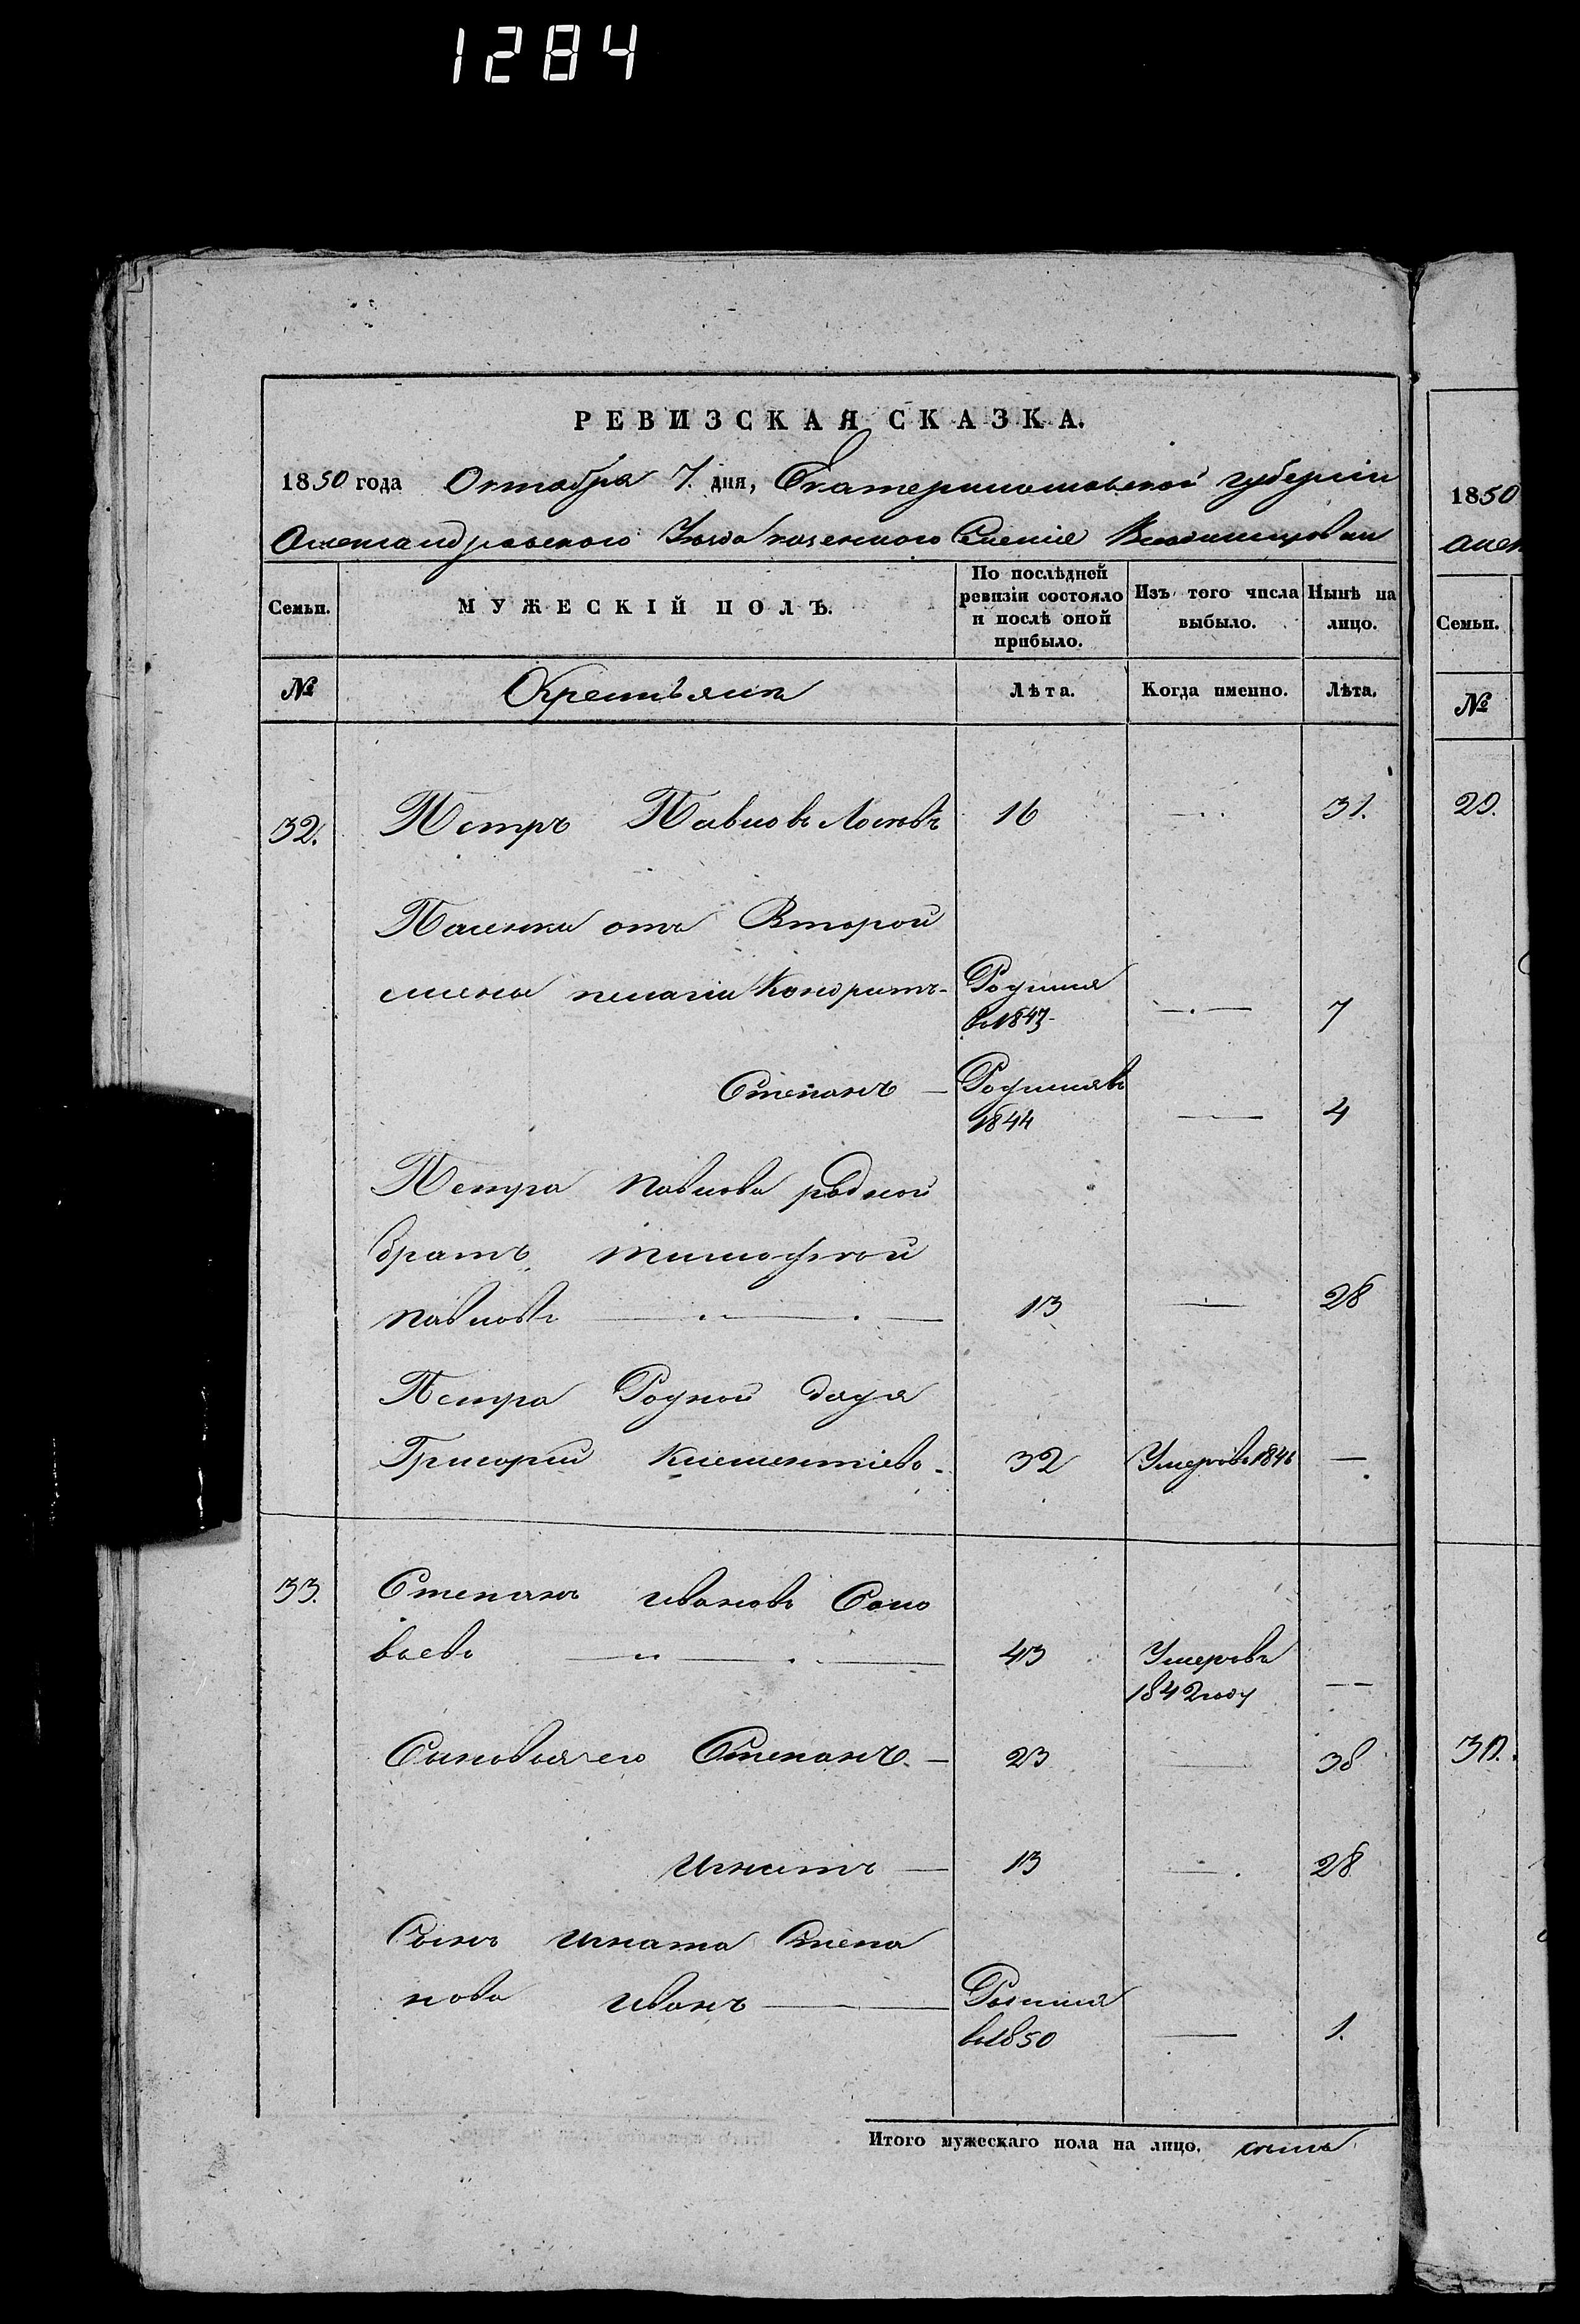 1284
РЕВИЗСКАЯ СКАЗКА.
1850 года Октября 7. дня, Екатеринославской губерніи
Александровскаго Уезда казенного Селенія
Семьи.
МУЖЕСКІЙ ПОЛЪ.
По послѣдней ревизіи состояло и послѣ оной прибыло.
Изъ того числа выбыло.
Нынѣ на лицо.
№
Крестьянъ
Лѣта.
Когда именно.
Лѣта.
32. Петръ Павловъ 16 31.
отъ Второй
жены пелагіи Кондратъ - Родился
въ 1843 - 7
Степанъ - Родился въ
1844 4
Петра Павлова родной
братъ тимофей
Павловъ 13 28
Петра Родной дядя
Григорий Клементіевъ - 32 Умеръ въ 1846 —
33. Степанъ ивановъ Соло
вьевъ 43 Умеръ въ
1842 году —
Сыновья его Степанъ - 23 38
Игнатъ — 13 28
Сынъ игната Степа
нова иванъ — Родился
въ 1850 1.
Итого мужескаго пола на лицо. семь
1850
Алек
Семьи.
№
29.
30.